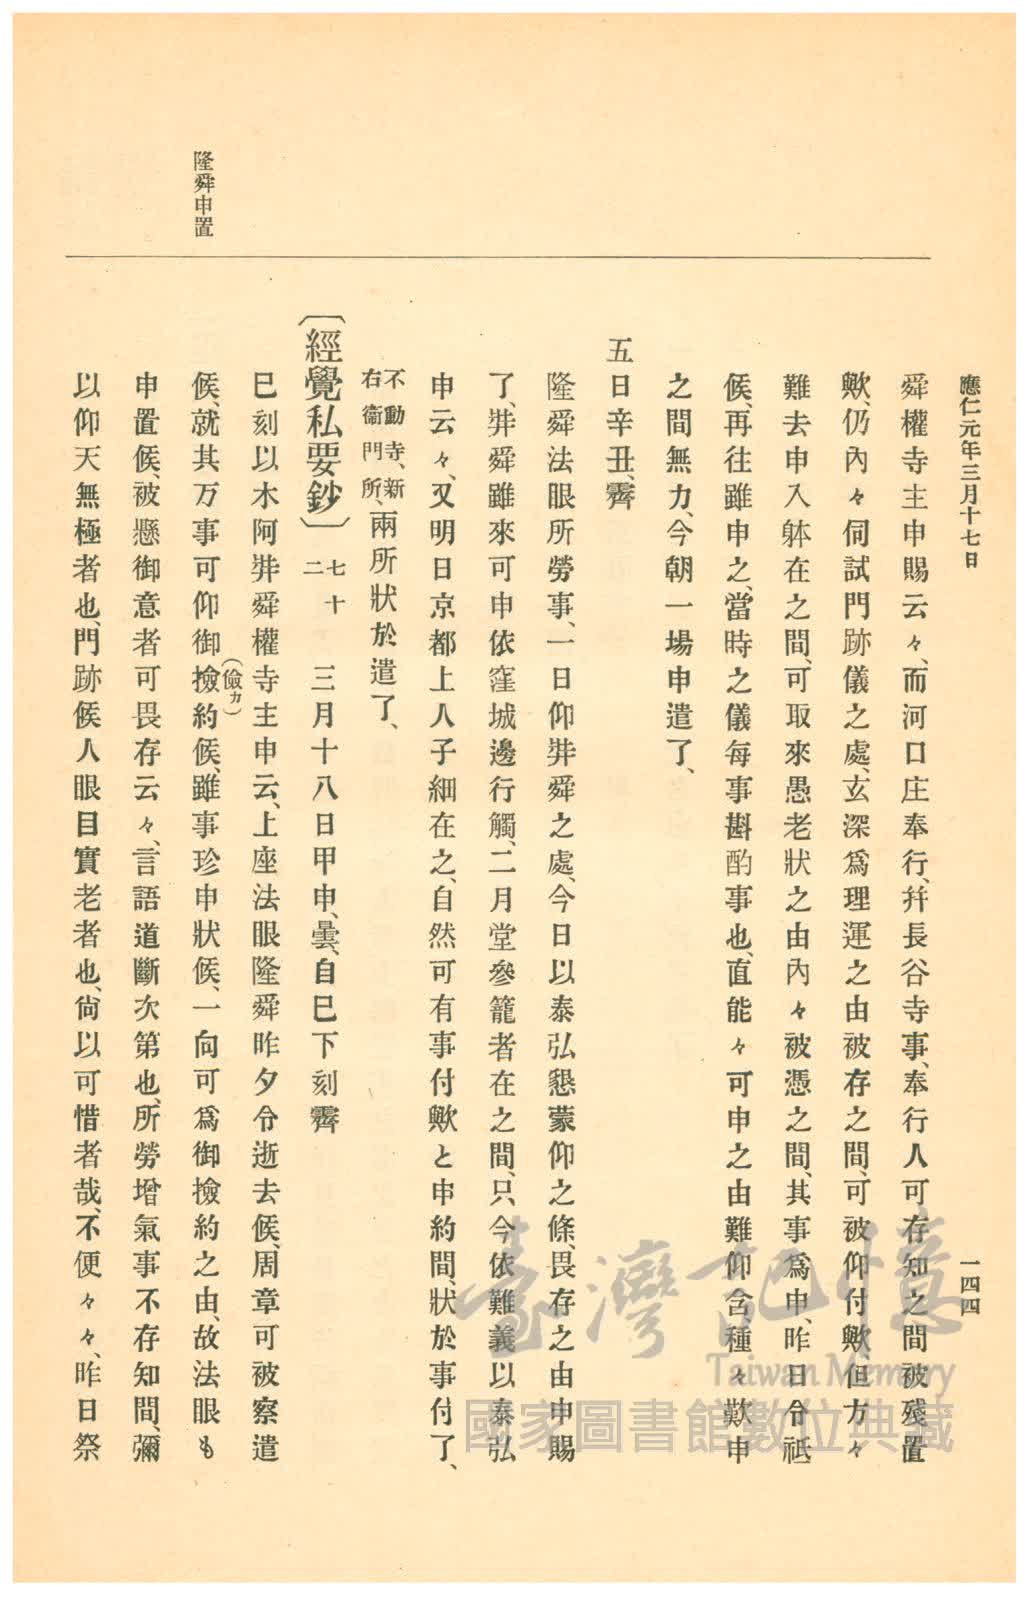 應仁元年三月十七日
一四四
舜權寺主申賜云々、而河口庄奉行、幷長谷寺事、奉行人可存知之間被殘置
歟、仍內々伺試門跡儀之處、玄深爲理運之由被存之間、可被仰付歟、但方々
難去申入躰在之間、可取來愚老狀之由內々被憑之間、其事爲申、昨日令祗
候、再往雖申之、當時之儀每事斟酌事也、直能々可申之由難仰含種々歎申
之間無力、今朝一場申遣了、
五日辛丑、霽
隆舜法眼所勞事、一日仰舜舜之處、今日以泰弘懇蒙仰之條、畏存之由申賜
了、舜舜雖來可申依窪城邊行觸、二月堂參籠者在之間、只今依難義以泰弘
申云々、又明日京都上人子細在之、自然可有事付歟と申約間、狀於事付了、
不動寺、新
右衞門所、兩所狀於遣了、
〔經覺私要鈔〕 七十
二 三月十八日甲申、曇、自巳下刻霽
巳刻以木阿舜舜權寺主申云、上座法眼隆舜昨夕令逝去候、周章可被察遣
候、就其万事可仰御撿約候、雖事珍申狀候、一向可爲御撿約之由、故法眼も
(儉カ)
申置候、被懸御意者可畏存云々、言語道斷次第也、所勞增氣事不存知間、彌
以仰天無極者也、門跡候人眼目實老者也、尙以可惜者哉、不便々々、昨日祭
隆舜申置
臺灣記憶
Taiwan Memory
國家圖書館數位典藏